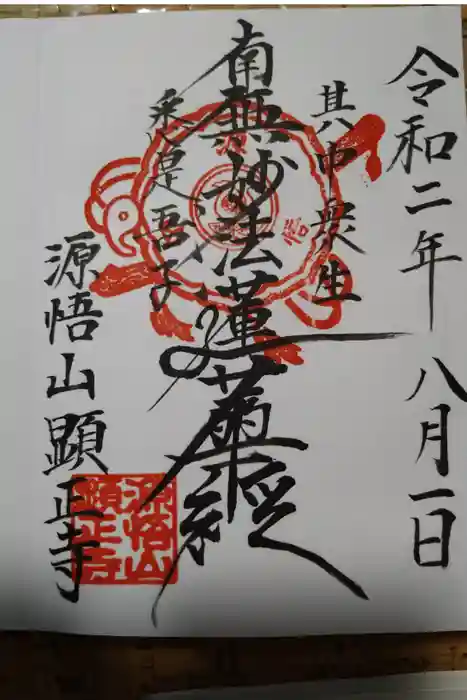 令和二年 八月一日
其中衆生
南無妙法蓮華経
悉是吾子
源悟山顕正寺
信
源悟山
顕正寺